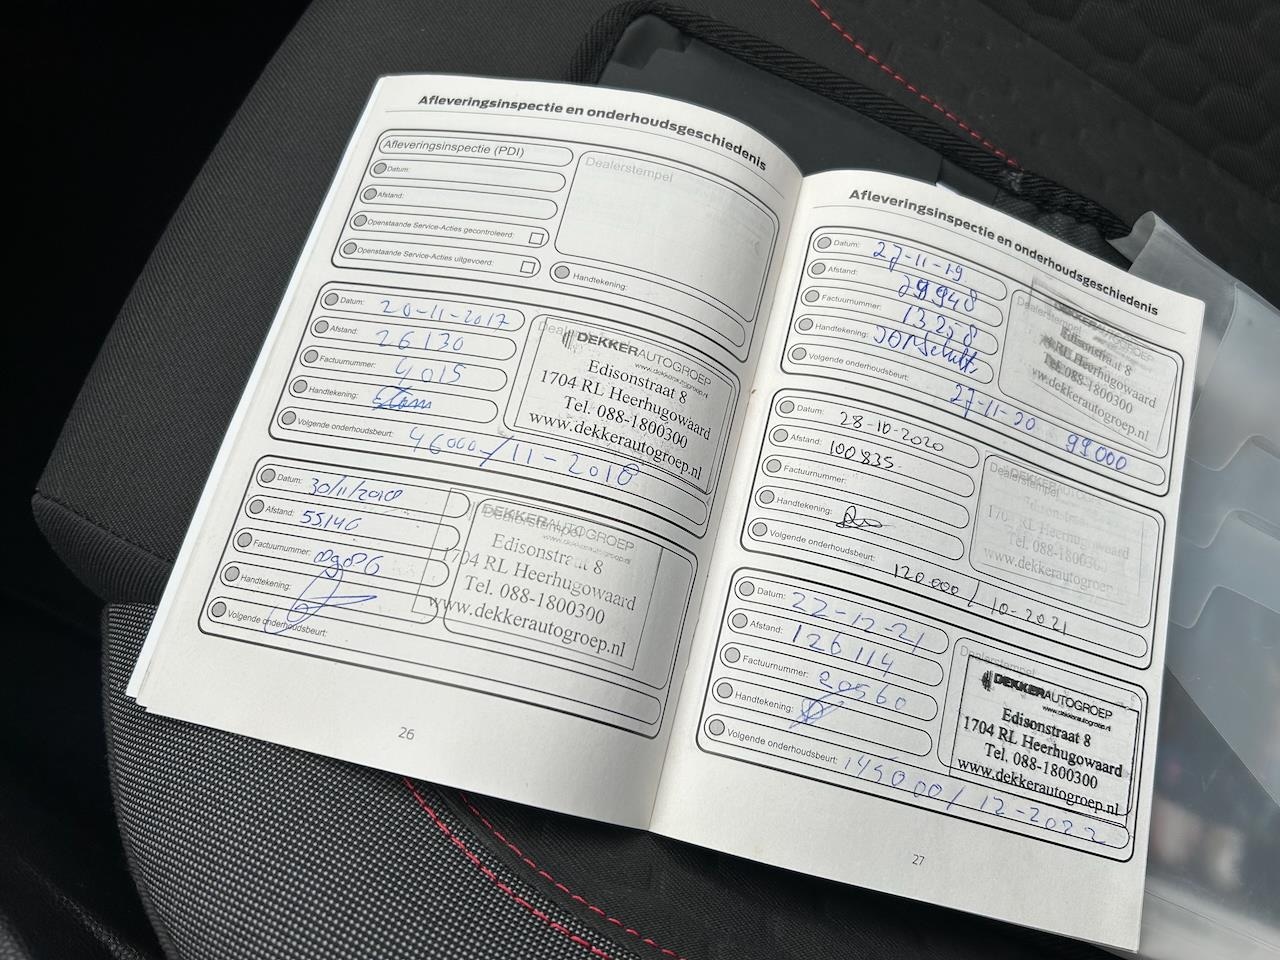 Afleveringsinspectie en onderhoudsgeschiedenis
Afleveringsinspectie (PDI)
Datum:
Afstand:
Openstaande Service-Acties gecontroleerd:
Openstaande Service-Acties uitgevoerd:
Dealerstempel
Handtekening:
Datum: 20-11-2017
Afstand: 26130
Factuurnummer: 4015
Handtekening:
Volgende onderhoudsbeurt: 46000/11-2018
Dealerstempel
DEKKERAUTOGROEP
www.dekkerautogroep.nl
Edisonstraat 8
1704 RL Heerhugowaard
Tel. 088-1800300
www.dekkerautogroep.nl
Datum: 30/11/2018
Afstand: 55146
Factuurnummer:
Handtekening:
Volgende onderhoudsbeurt:
Dealerstempel
DEKKERAUTOGROEP
www.dekkerautogroep.nl
Edisonstraat 8
1704 RL Heerhugowaard
Tel. 088-1800300
www.dekkerautogroep.nl
26
Afleveringsinspectie en onderhoudsgeschiedenis
Datum: 27-11-19
Afstand: 79948
Factuurnummer: 13258
Handtekening:
Volgende onderhoudsbeurt: 27-11-20 99000
Dealerstempel
DEKKERAUTOGROEP
Edisonstraat 8
RL Heerhugowaard
Tel. 088-1800300
www.dekkerautogroep.nl
Datum: 28-10-2020
Afstand: 100835
Factuurnummer:
Handtekening:
Volgende onderhoudsbeurt: 120.000/10-2021
Dealerstempel
DEKKERAUTOGROEP
Edisonstraat 8
RL Heerhugowaard
Tel. 088-1800300
www.dekkerautogroep.nl
Datum: 22-12-21
Afstand: 126114
Factuurnummer: 20560
Handtekening:
Volgende onderhoudsbeurt: 145000/12-2022
Dealerstempel
DEKKERAUTOGROEP
www.dekkerautogroep.nl
Edisonstraat 8
1704 RL Heerhugowaard
Tel. 088-1800300
www.dekkerautogroep.nl
27